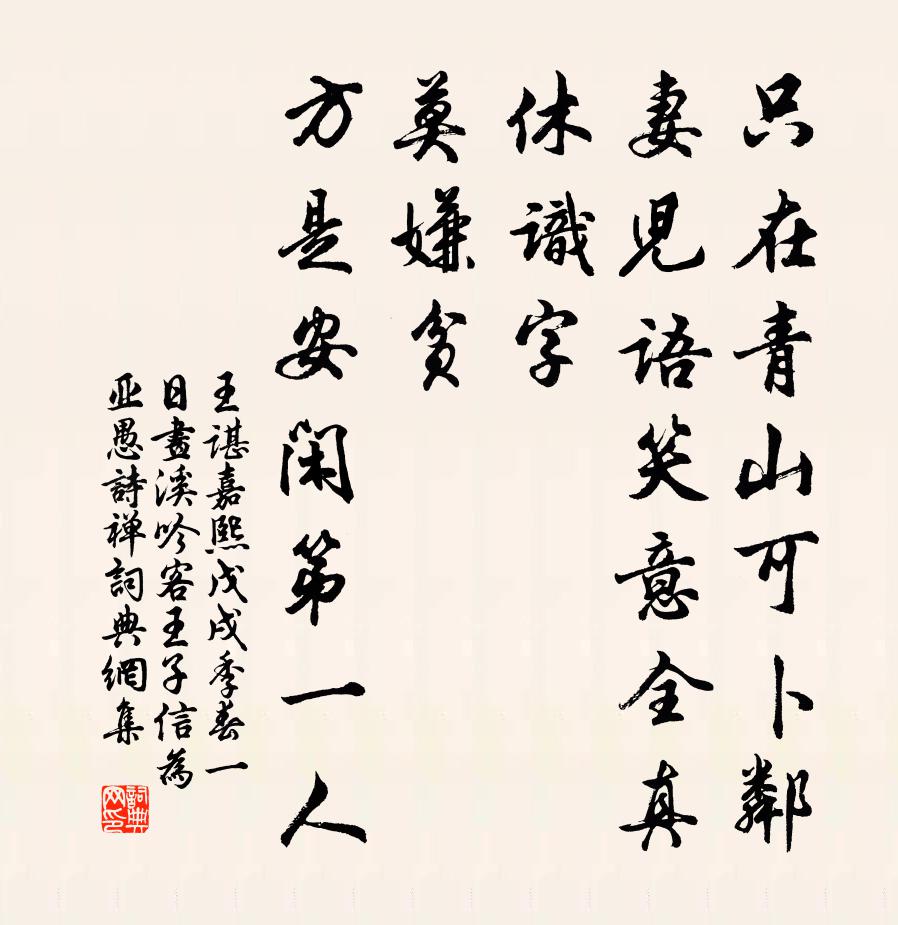 只在青山可卜鄰
妻兒語笑意全真
休識字
莫嫌貧
方是安閑第一人
王諶嘉熙戊戌季春一
日畫溪吟客王子信為
亚愚詩禅詞典網集
詞典
网印